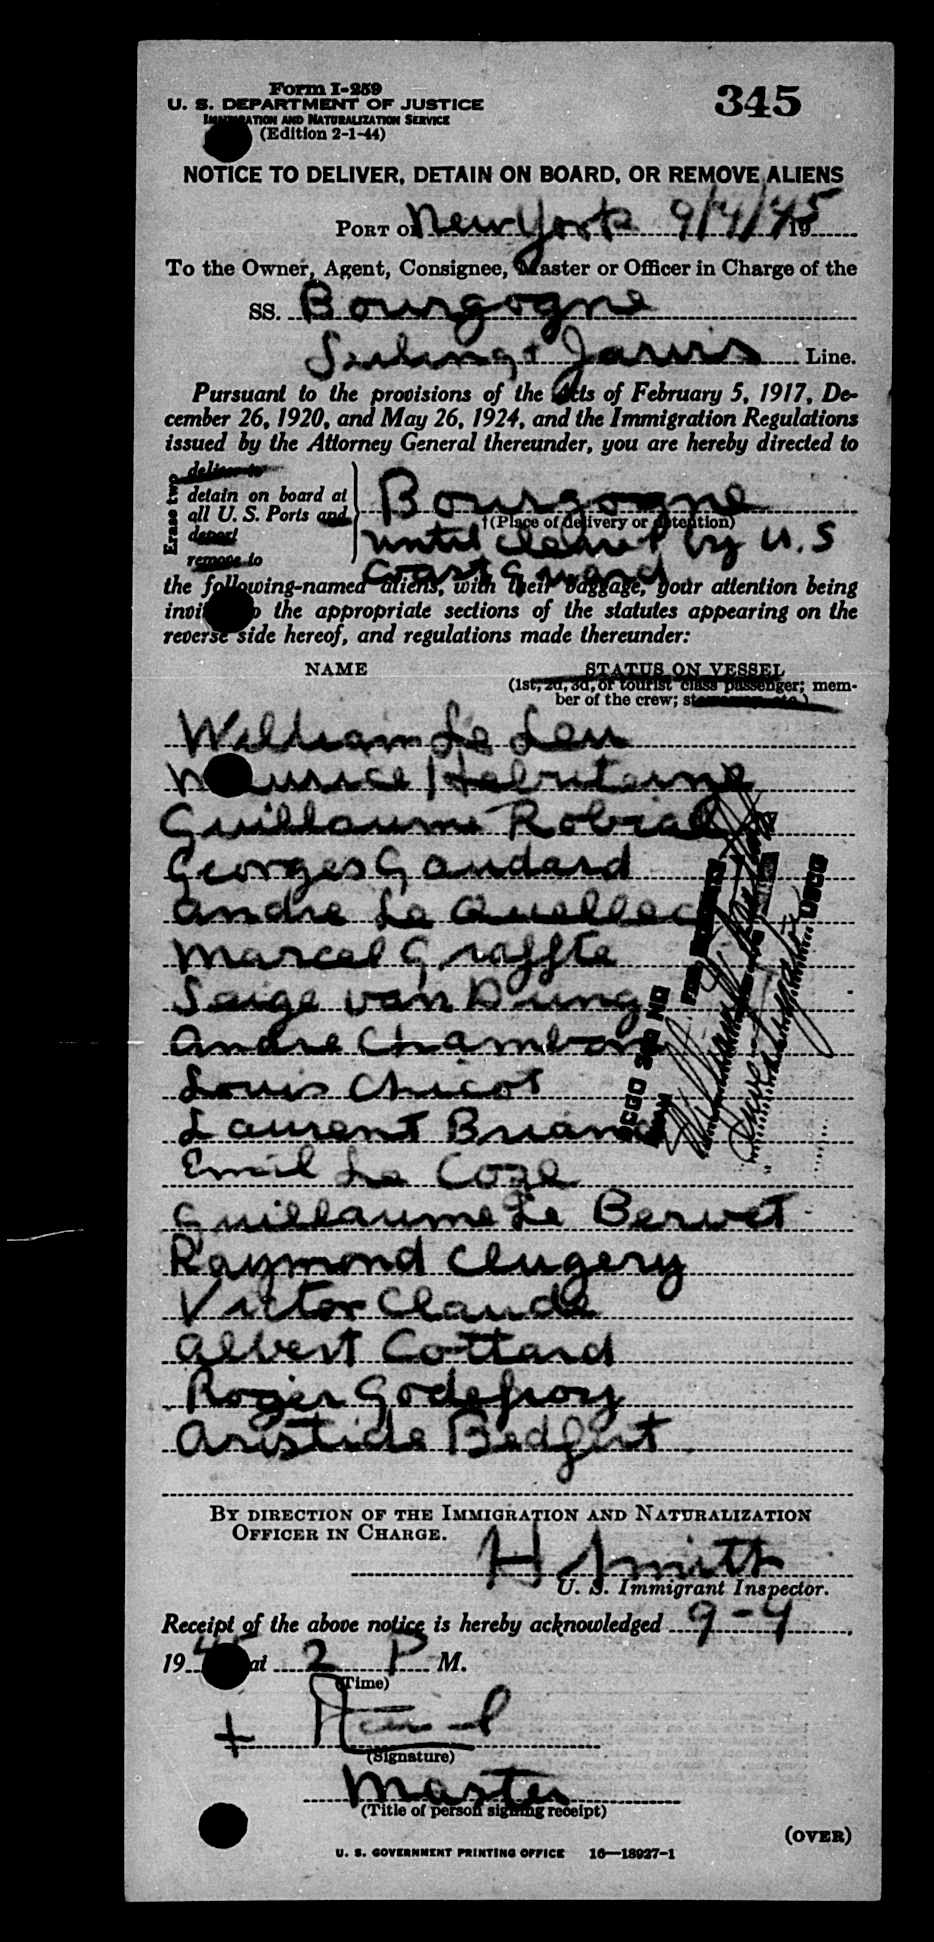 Form I-259
345
U. S. DEPARTMENT OF JUSTICE
IMMIGRATION AND NATURALIZATION SERVICE
(Edition 2-1-44)
NOTICE TO DELIVER, DETAIN ON BOARD, OR REMOVE ALIENS
PORT OF New York 9/4/45 19
To the Owner, Agent, Consignee, Master or Officer in Charge of the
SS. Bourgogne
& Jarvis Line.
Pursuant to the provisions of the Acts of February 5, 1917, De-
cember 26, 1920, and May 26, 1924, and the Immigration Regulations
issued by the Attorney General thereunder, you are hereby directed to
Erase two
deliver to
detain on board at
all U. S. Ports and
deport
remove to
Bourgogne
†(Place of delivery or detention)
until cleared by U.S
Coast Guard
the following-named aliens, with their baggage, your attention being
invited to the appropriate sections of the statutes appearing on the
reverse side hereof, and regulations made thereunder:
NAME STATUS ON VESSEL
(1st, 2d, 3d, or tourist class passenger; mem-
ber of the crew; stowaway, etc.)
William Le Leu
Maurice Hebuterne
Guillaume Robial
Georges Gaudard
Andre Le Quellec
Marcel Graffte
Serge van Dung
Andre Chambon
Louis Chicot
Laurent Briand
Emil Le Coze
Guillaume Le Bervet
Raymond Clugery
Victor Claude
Albert Cottard
Roger Godefroy
Aristide Bedfert
BY DIRECTION OF THE IMMIGRATION AND NATURALIZATION
OFFICER IN CHARGE.
H Smith
U. S. Immigrant Inspector.
Receipt of the above notice is hereby acknowledged 9-4,
1945 at 2 P M.
(Time)
+
(Signature)
Master
(Title of person signing receipt)
(OVER)
U. S. GOVERNMENT PRINTING OFFICE 16—18927-1